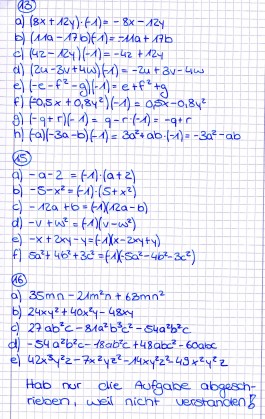 13
a) (8x + 12y)·(-1) = -8x - 12y
b) (11a - 17b)(-1) = -11a + 17b
c) (4z - 12y)(-1) = -4z + 12y
d) (2u - 3v + 4w)(-1) = -2u + 3v - 4w
e) (-e - f² - g)(-1) = e + f² + g
f) (-0,5x + 0,8y²)(-1) = 0,5x - 0,8y²
g) (-q + r)(-1) = q - r·(-1) = -q + r
h) (-a)(-3a - b)(-1) = 3a² + ab·(-1) = -3a² - ab
15
a) -a - 2 = (-1)·(a + 2)
b) -5 - x² = (-1)·(5 + x²)
c) -12a + b = (-1)(12a - b)
d) -v + w² = (-1)(v - w²)
e) -x + 2xy - y = (-1)(x - 2xy + y)
f) 5a² + 4b² + 3c² = (-1)(-5a² - 4b² - 3c²)
16
a) 35mn - 21m²n + 63mn²
b) 24xy² + 40x²y - 48xy
c) 27ab²c - 81a²b³c² - 54a²b²c
d) -54a²b²c - 18ab²c + 48abc² - 60abc
e) 42x³y²z - 7x²yz² - 14xy²z² - 49x²y²z
Hab nur die Aufgabe abgesch-
rieben, weil nicht verstanden!